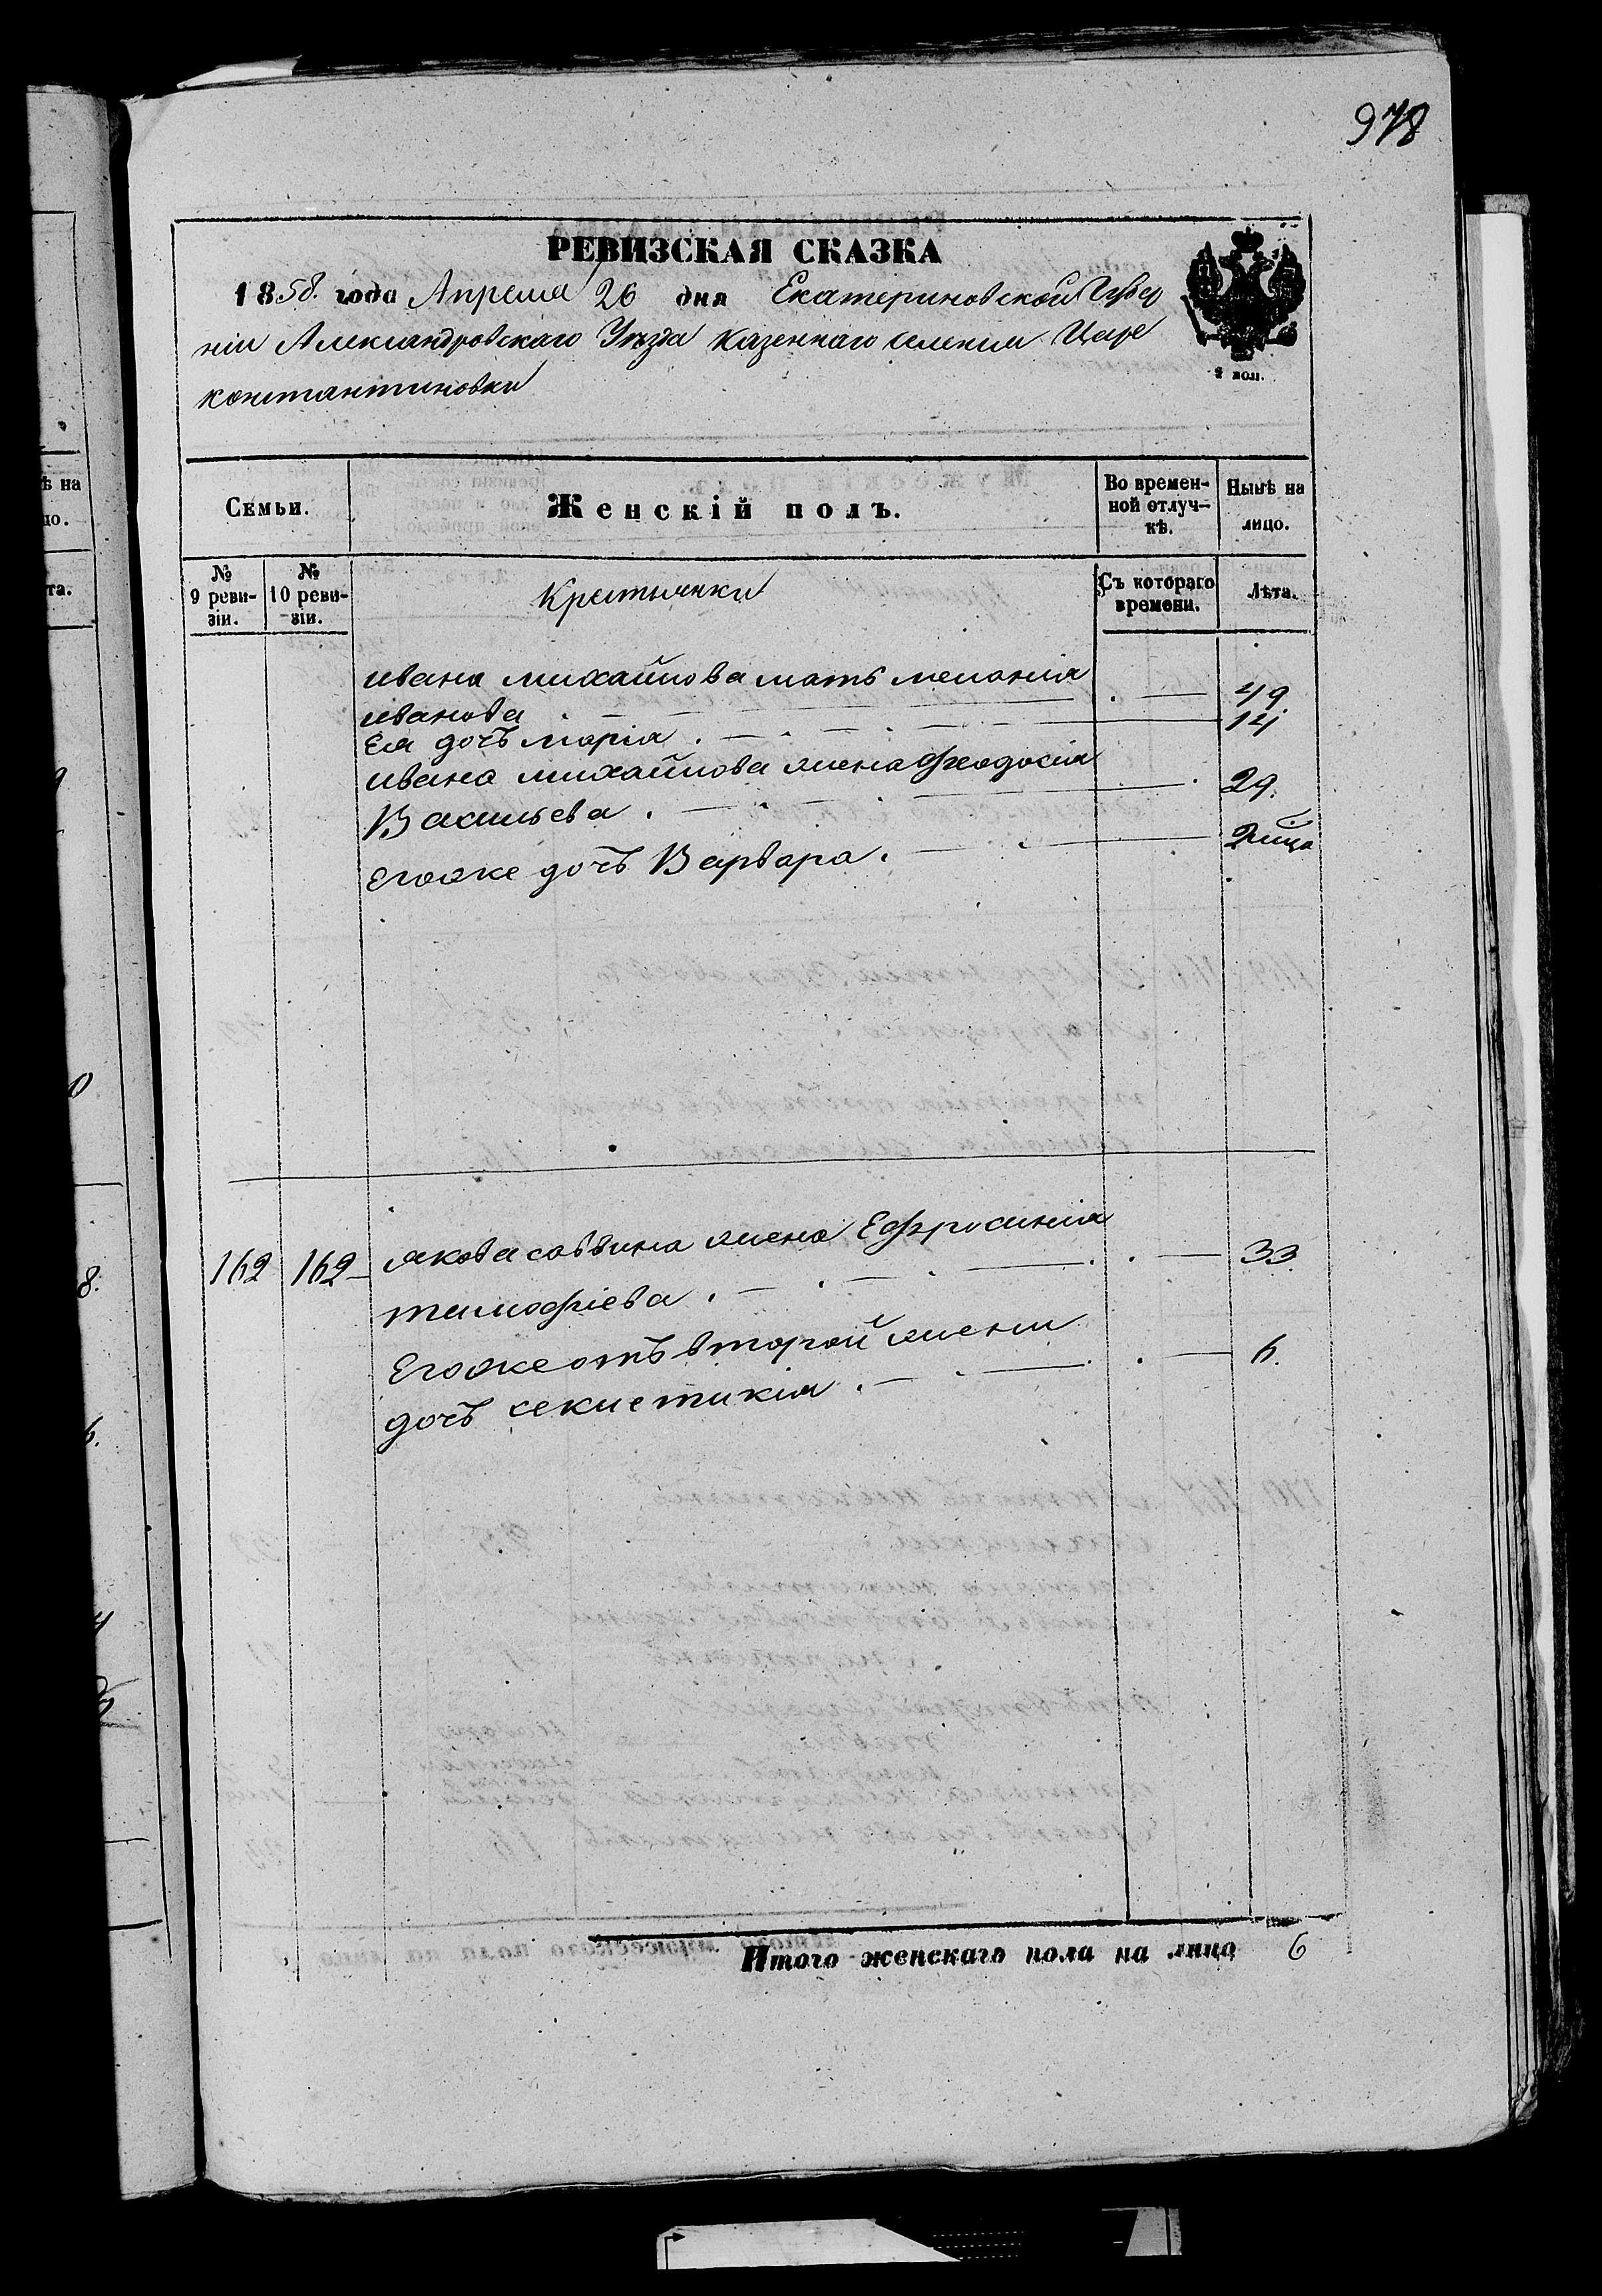 978
РЕВИЗСКАЯ СКАЗКА
1858. года Апреля 26 дня Екатериновской Губер
ніи Александровскаго Уѣзда казеннаго селенія Царе
константиновки
Семьи.
Женскій полъ.
Во времен-
ной отлуч-
кѣ.
Нынѣ на
лицо.
№
9 реви-
зіи.
№
10 реви-
зіи.
Крестьянки
Съ котораго
времени.
Лѣта.
ивана михайлова мать меланія
иванова . — 49
Ея дочь марія . — 14
ивана михайлова жена феодосія
Васильева . — 29.
егоже дочь Варвара . —
162 162 якова саввина жена Ефросинія
тимофіева . — 33.
Егоже отъ второй жены
дочь секлетикія . — 6.
Итого женскаго пола на лицо 6
ѣ на
цо.
та.
8.
6.